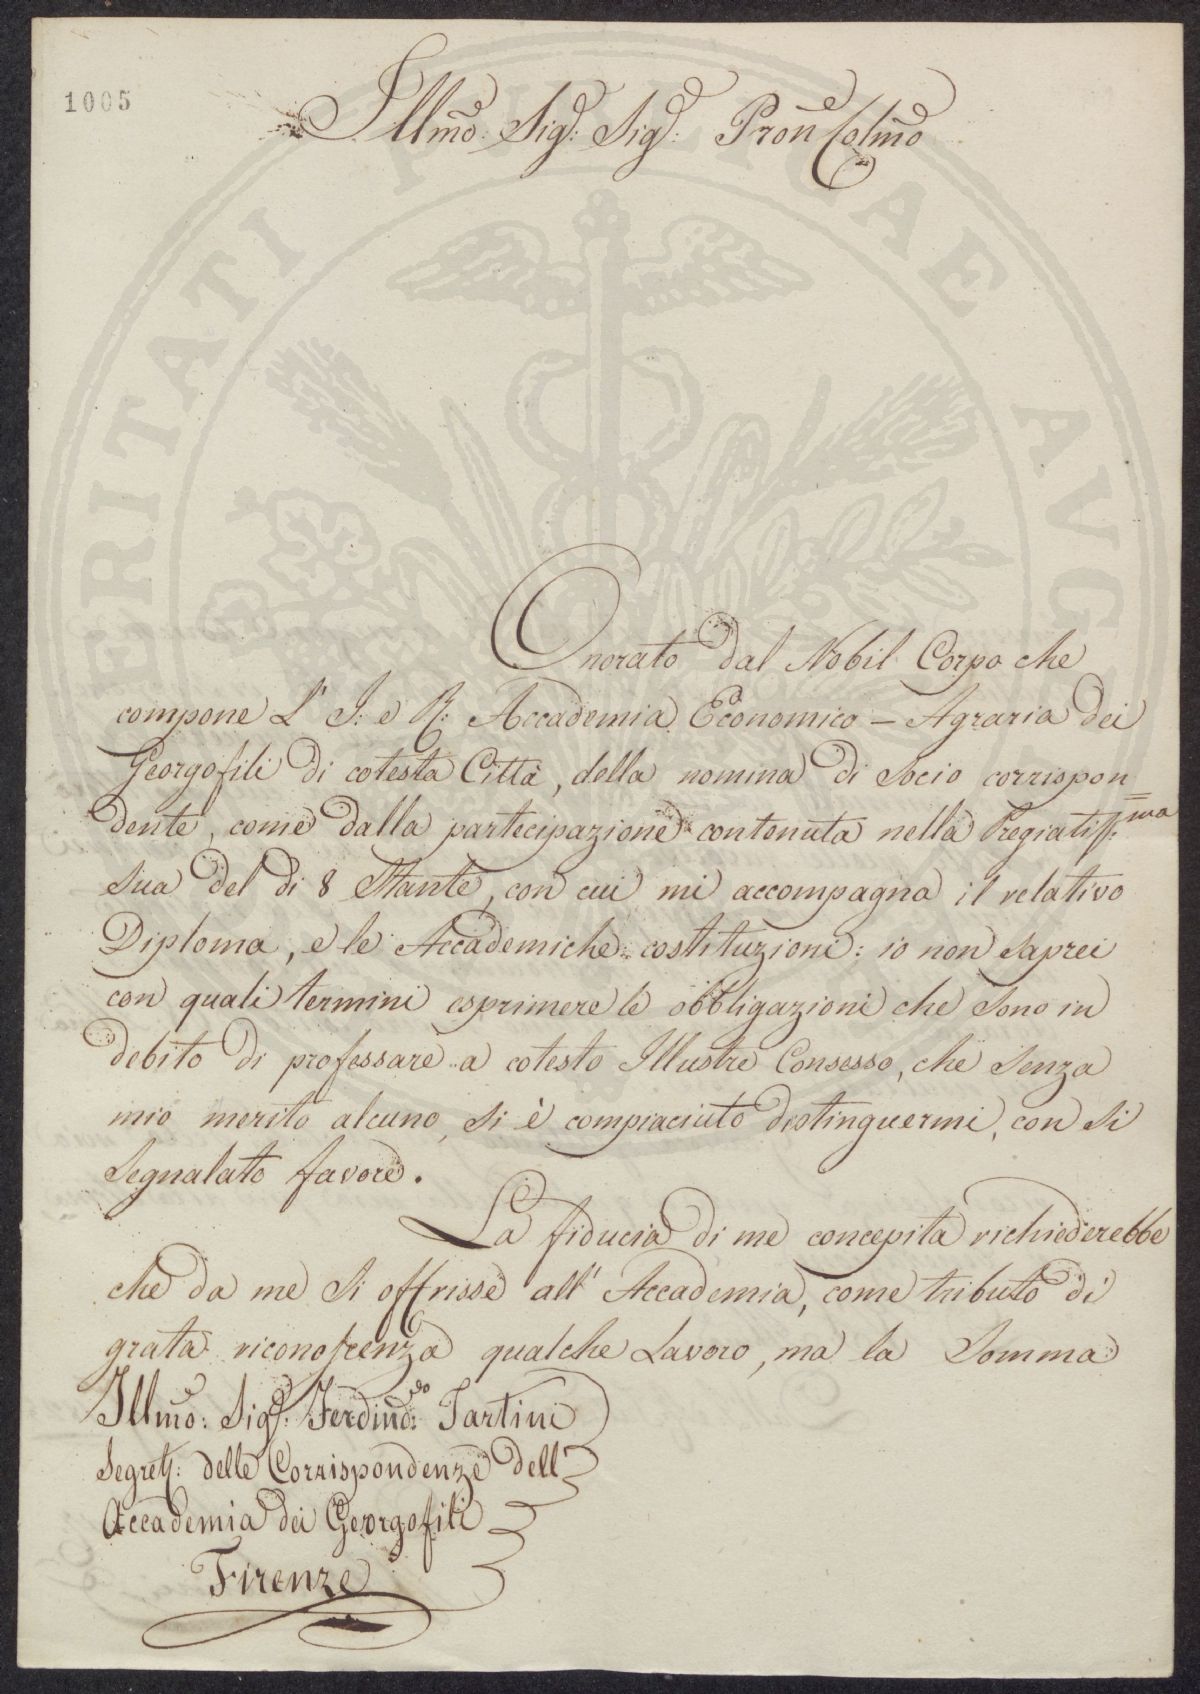 1005
Illmo: Sig: Sig: Pron Colmo
Onorato dal Nobil Corpo che
compone L' I: e R: Accademia Economico - Agraria dei
Georgofili di cotesta Città, della nomina di Socio corrispon=
dente, come dalla partecipazione contenuta nella Pregiatiss:ma
Sua del di 8 Stante, con cui mi accompagna il relativo
Diploma, e le Accademiche costituzioni: io non saprei
con quali termini esprimere le obbligazioni che sono in
debito di professare a cotesto Illustre Consesso, che senza
mio merito alcuno, si è compiaciuto distinguermi, con si
segnalato favore.
La fiducia di me concepita richiederebbe
che da me si offrisse all' Accademia, come tributo di
grata riconoscenza qualche Lavoro, ma la Somma
Illmo: Sig: Ferdin:do Tartini
Segret: delle Corrispondenze dell'
Accademia dei Georgofili
Firenze